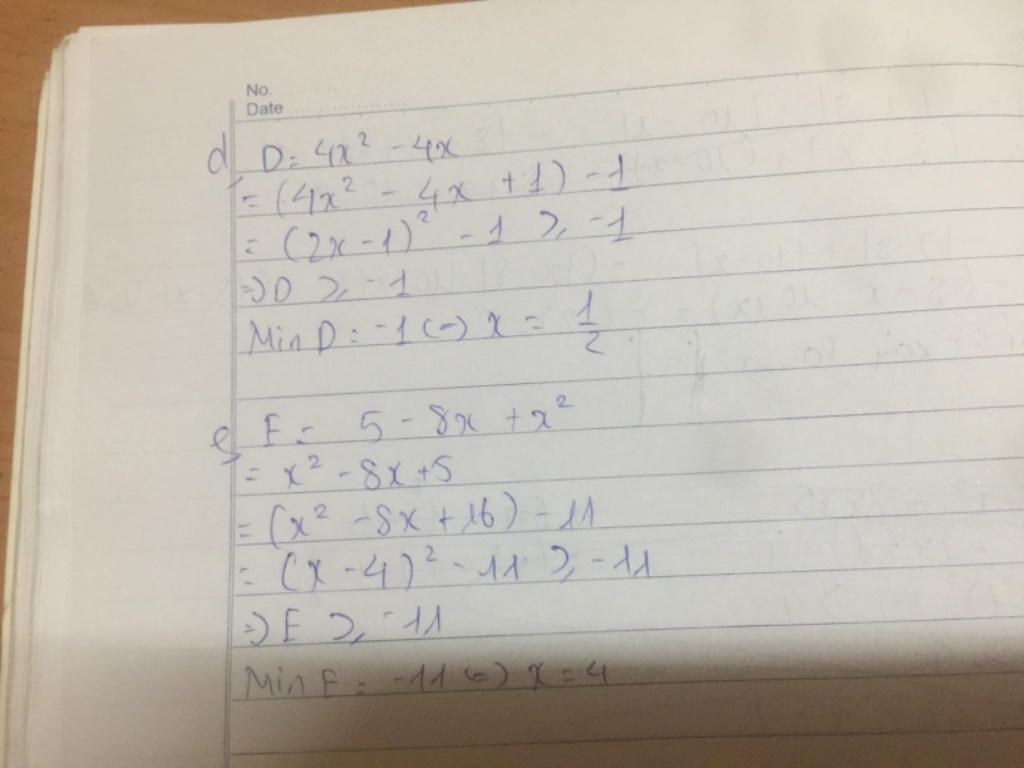 No.
Date
d, D = 4x² - 4x
= (4x² - 4x + 1) - 1
= (2x - 1)² - 1 ≥ -1
=> D ≥ -1
Min D = -1 <=> x = 1/2
e, E = 5 - 8x + x²
= x² - 8x + 5
= (x² - 8x + 16) - 11
= (x - 4)² - 11 ≥ -11
=> E ≥ -11
Min E = -11 <=> x = 4